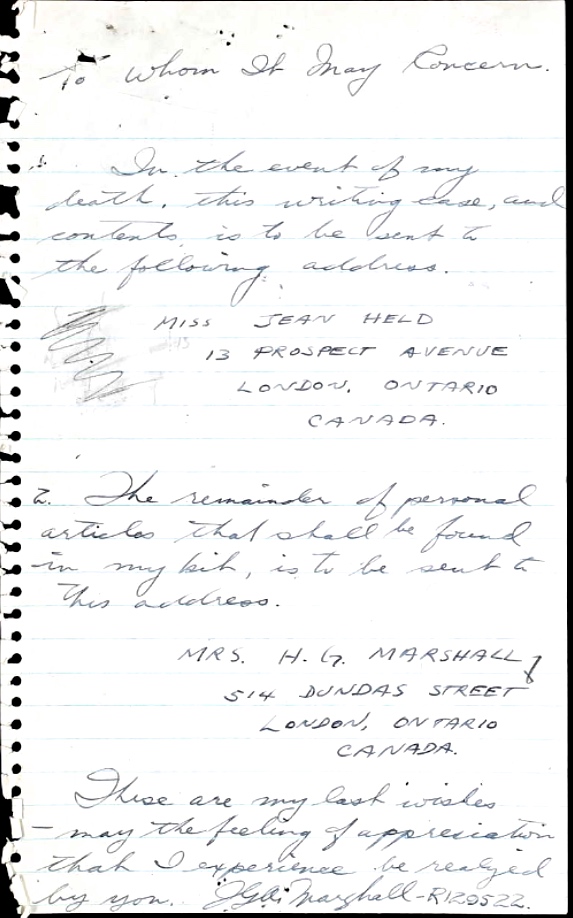 To Whom It May Concern.
1. In the event of my
death, this writing case, and
contents, is to be sent to
the following address.
MISS JEAN HELD
13 PROSPECT AVENUE
LONDON, ONTARIO
CANADA.
2. The remainder of personal
articles that shall be found
in my kit, is to be sent to
this address.
MRS. H. G. MARSHALL
514 DUNDAS STREET
LONDON, ONTARIO
CANADA.
These are my last wishes
- may the feeling of appreciation
that I experience be realized
by you. Marshall-R129522.